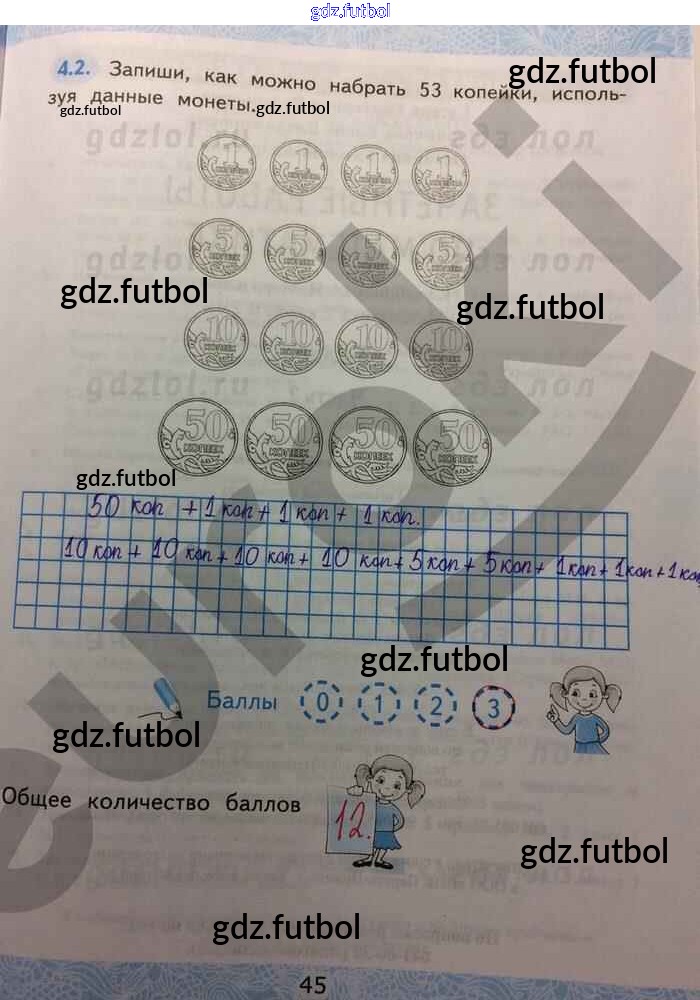 gdz.futbol
4.2. Запиши, как можно набрать 53 копейки, исполь-
gdz.futbol
зуя данные монеты.
gdz.futbol
gdz.futbol
gdzlol.ru
1 1 1 1
5 КОПЕЕК 5 КОПЕЕК 5 КОПЕЕК 5 КОПЕЕК
gdz.futbol
gdz.futbol
10 КОПЕЕК 10 КОПЕЕК 10 КОПЕЕК 10 КОПЕЕК
gdzlol.ru
50 КОПЕЕК 50 КОПЕЕК 50 КОПЕЕК 50 КОПЕЕК
gdz.futbol
50 коп + 1 коп + 1 коп + 1 коп.
10 коп + 10 коп + 10 коп + 10 коп + 5 коп + 5 коп + 1 коп + 1 коп + 1 коп
gdz.futbol
Баллы 0 1 2 3
gdz.futbol
Общее количество баллов 12.
gdz.futbol
gdz.futbol
45
euroki